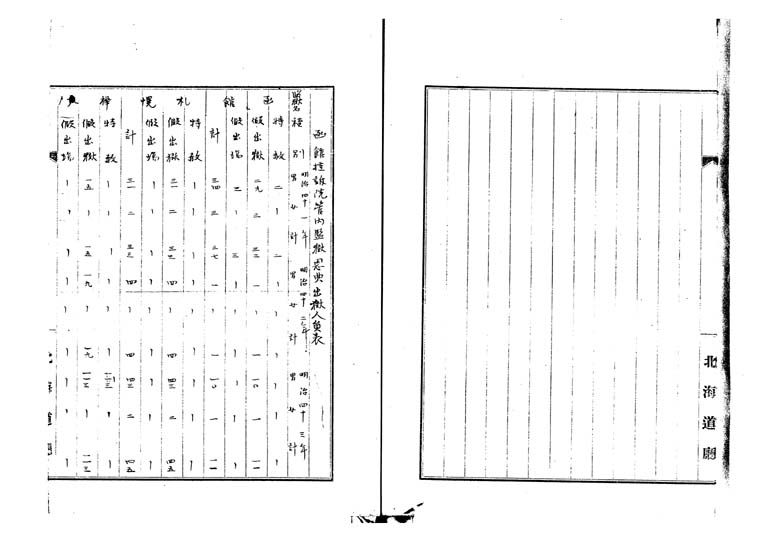 北海道廳
函館控訴院管内監獄恩典出獄人員表
監獄種別 明治四十一年 男 女 計 明治四十二年 男 女 計 明治四十三年 男 女 計
函館 特赦 二 | 二 | | | | | |
假出獄 二九 三 三二 一 | 一 一〇 一 一一
假出場 三 | 三 | | | | | |
計 三四 三 三七 一 | 一 一〇 一 一一
札幌 特赦 | | | | | | | | |
假出獄 三一 二 三三 四 | 四 四三 二 四五
假出場 | | | | | | | | |
計 三一 二 三三 四 | 四 四三 二 四五
樺戸 特赦
假出獄 一五 | 一五 一九 | 一九
假出場 | | | | | | | | |